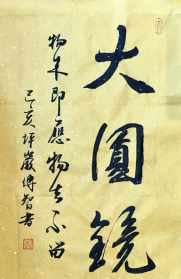 大圓鏡
物來即應物去不留
己亥坪巖傳智書